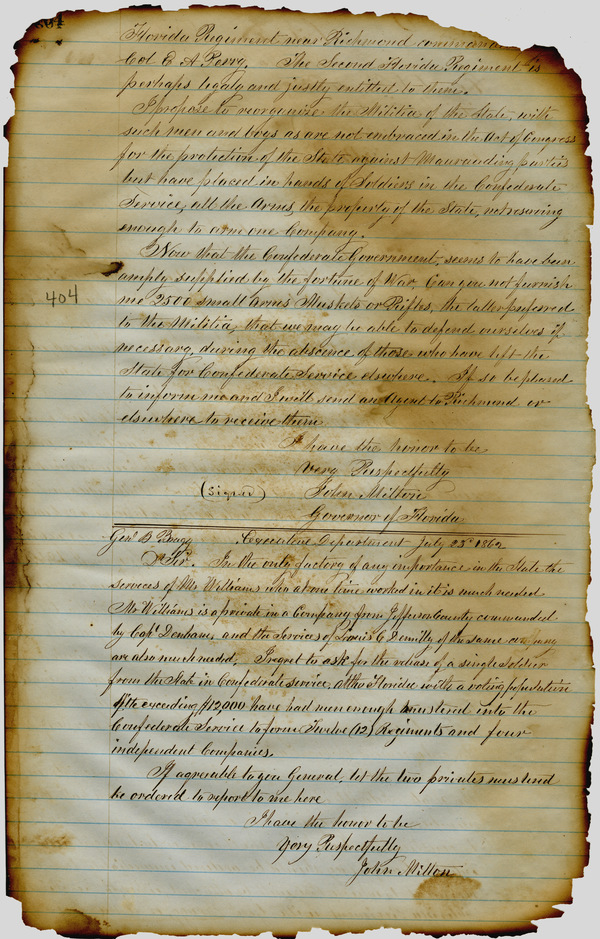 404
Florida Regiment near Richmond
Col E A Perry, The Second Florida Regiment is
perhaps legaly and justly entitled to them.
I propose to reorganize the Militia of the State, with
such men and boys as are not embraced in the Act of Congress
for the protection of the State against Mauranding parties
but have placed in hands of Soldiers in the Confederate
Service, all the Arms, the property of the State, not reserving
enough to arm one Company.
Now that the Confederate Government, seems to have been
amply supplied by the fortune of War, Can you not furnish
me 2500 small arms Muskets or Rifles, the latter preferred
to the Militia, that we may be able to defend ourselves if
necessary during the absence of those who have left the
State for Confederate Service elsewhere. If so be pleased
to inform me and I will send an Agent to Richmond or
elsewhere to receive them
I have the honor to be
Very Respectfully
(Signed) John Milton
Governor of Florida
Genl B Bragg Executive Department July 23d 1862
Sir. In the only factory of any importance in the State the
services of Mr Williams who at one time worked in it is much needed
Mr Williams is a private in a Company from Jefferson County commanded
by Capt Denham, and the services of Louis C Demilly of the same company
are also much needed. I regret to ask for the release of a single soldier
from the State in Confederate service, altho Florida with a voting population
exceeding 12,000 have had men enough mustered into the
Confederate Service to form Twelve (12) Regiments and four
independent Companies.
If agreable to you General, let the two privates mustered
be ordered to report to me here
I have the honor to be
Very Respectfully
John Milton